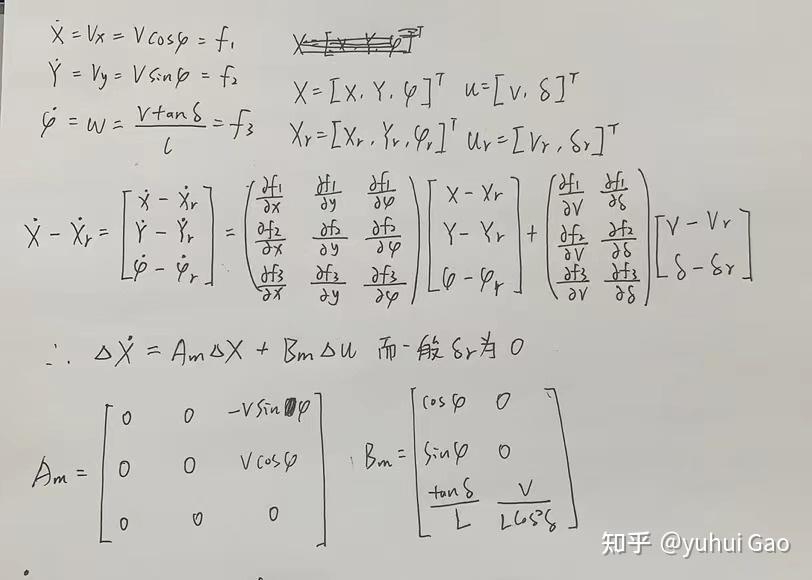 Ẋ = Vx = V cosφ = f₁
Ẏ = Vy = V sinφ = f₂
φ̇ = w = V tanδ / L = f₃
X = [X, Y, φ]ᵀ u = [V, δ]ᵀ
Xr = [Xr, Yr, φr]ᵀ Ur = [Vr, δr]ᵀ
Ẋ - Ẋr = [Ẋ - Ẋr; Ẏ - Ẏr; φ̇ - φ̇r] = (∂f₁/∂x ∂f₁/∂y ∂f₁/∂φ; ∂f₂/∂x ∂f₂/∂y ∂f₂/∂φ; ∂f₃/∂x ∂f₃/∂y ∂f₃/∂φ) [X - Xr; Y - Yr; φ - φr] + (∂f₁/∂V ∂f₁/∂δ; ∂f₂/∂V ∂f₂/∂δ; ∂f₃/∂V ∂f₃/∂δ) [V - Vr; δ - δr]
∴ ΔẊ = AmΔX + BmΔu 而一般δr为0
Am = [0 0 -V sinφ; 0 0 V cosφ; 0 0 0] Bm = [cosφ 0; sinφ 0; tanδ/L V/(L cos²δ)]
知乎 @yuhui Gao